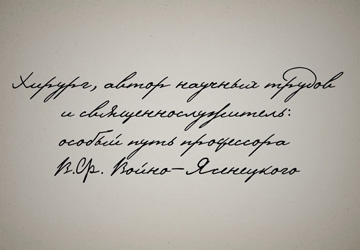 Хирург, автор научных трудов
и священнослужитель:
особый путь профессора
В.Ф. Войно-Ясенецкого